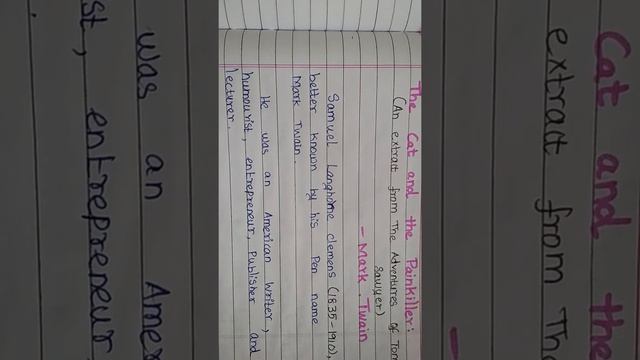 Cat and the
extract from Th
The Cat and the Painkiller:
(An extract from The Adventures of Tom
Sawyer)
- Mark Twain
Samuel Langhorne clemens (1835-1910),
better known by his Pen name
Mark Twain.
He was an American Writer,
humourist, entrepreneur, Publisher and
lecturer.
was an Amer
st, entrepreneur